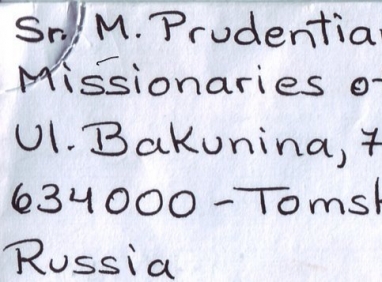 Sr. M. Prudentia
Missionaries
Ul. Bakunina, 7
634000 - Toms
Russia